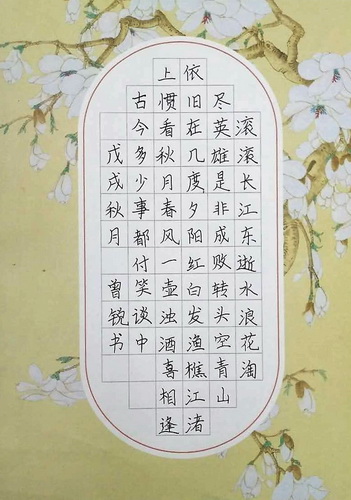 滚滚长江东逝水浪花淘
尽英雄是非成败转头空青山
依旧在几度夕阳红白发渔樵江渚
上惯看秋月春风一壶浊酒喜相逢
古今多少事都付笑谈中
戊戌秋月 曾锐书